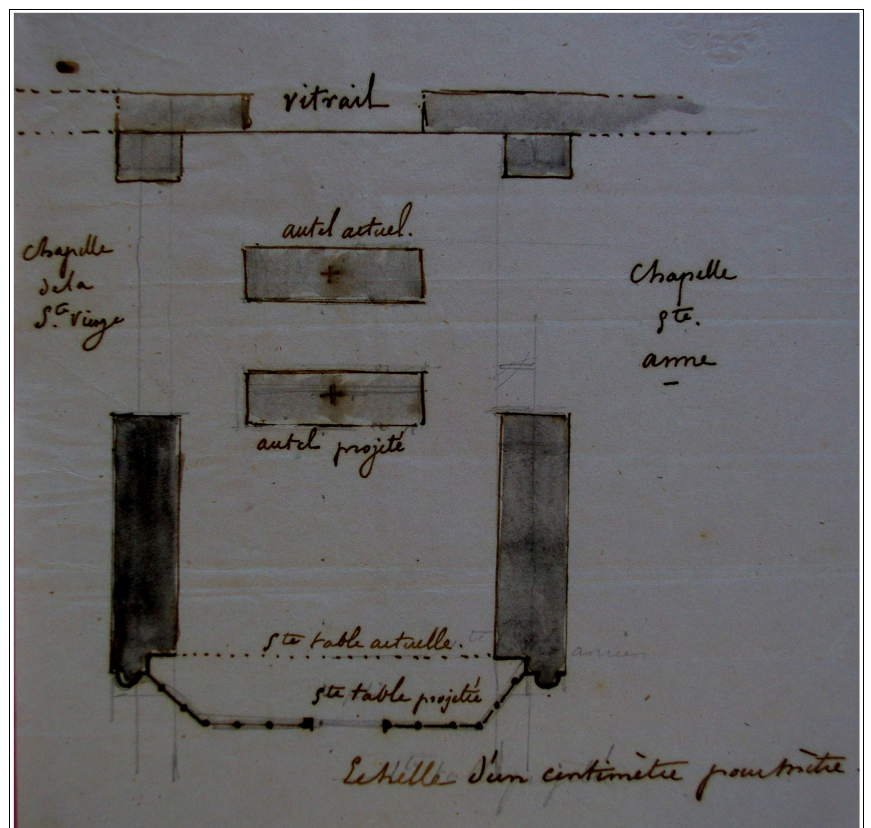 vitrail
autel actuel.
Chapelle
de la
Ste. Vierge
Chapelle
Ste.
anne
autel projeté
Ste table actuelle.
ancien
Ste table projetée
Echelle d'un centimètre pour mètre.